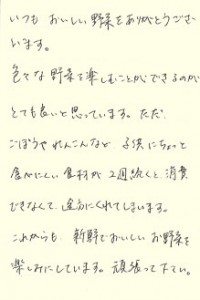 いつも おいしい野菜をありがとうござい
います。
色々な野菜を楽しむことができるのが
とても良いと思っています。ただ、
ごぼうやれんこんなど、子供にちょっと
食べにくい食材が2週続くと、消費
できなくて、途方にくれてしまいます。
これからも、新鮮でおいしいお野菜を
楽しみにしています。頑張って下さい。